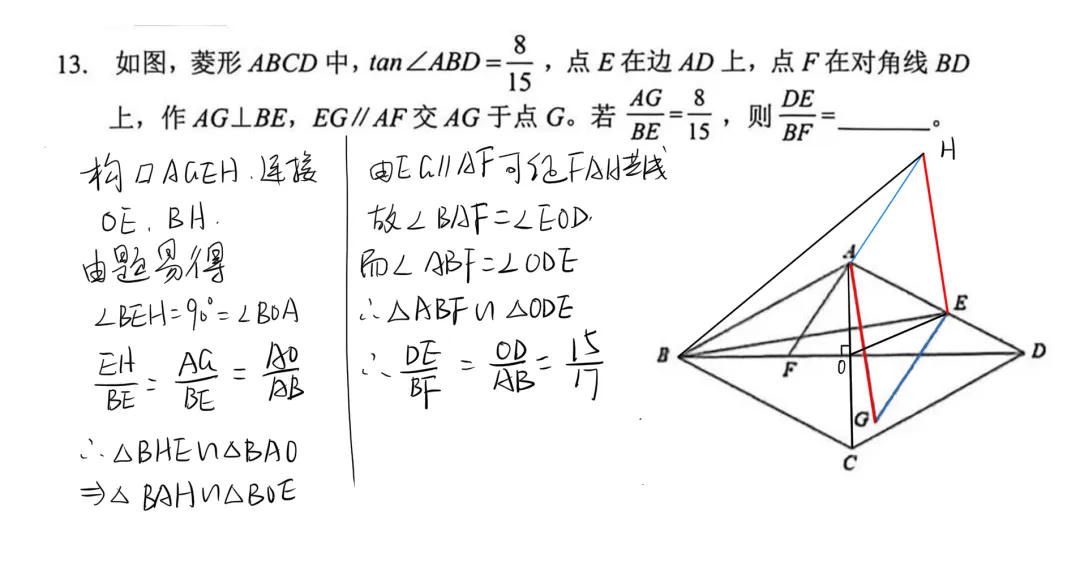 13. 如图，菱形 ABCD 中，tan∠ABD=8/15，点 E 在边 AD 上，点 F 在对角线 BD
上，作 AG⊥BE，EG∥AF 交 AG 于点 G。若 AG/BE=8/15，则 DE/BF=______。
构▱AGEH.连接
OE、BH.
由题易得
∠BEH=90°=∠BOA
EH/BE=AG/BE=AO/AB
∴△BHE∽△BAO
⇒△BAH∽△BOE
由EG∥AF可得FAH共线
故∠BAF=∠EOD.
而∠ABF=∠ODE
∴△ABF∽△ODE
∴DE/BF=OD/AB=15/17
H
A
E
B
F
O
D
G
C